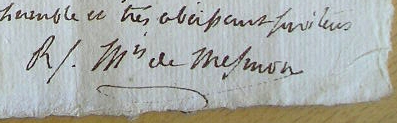 humble et très obéissant serviteur
R/. Mis de Mesmon